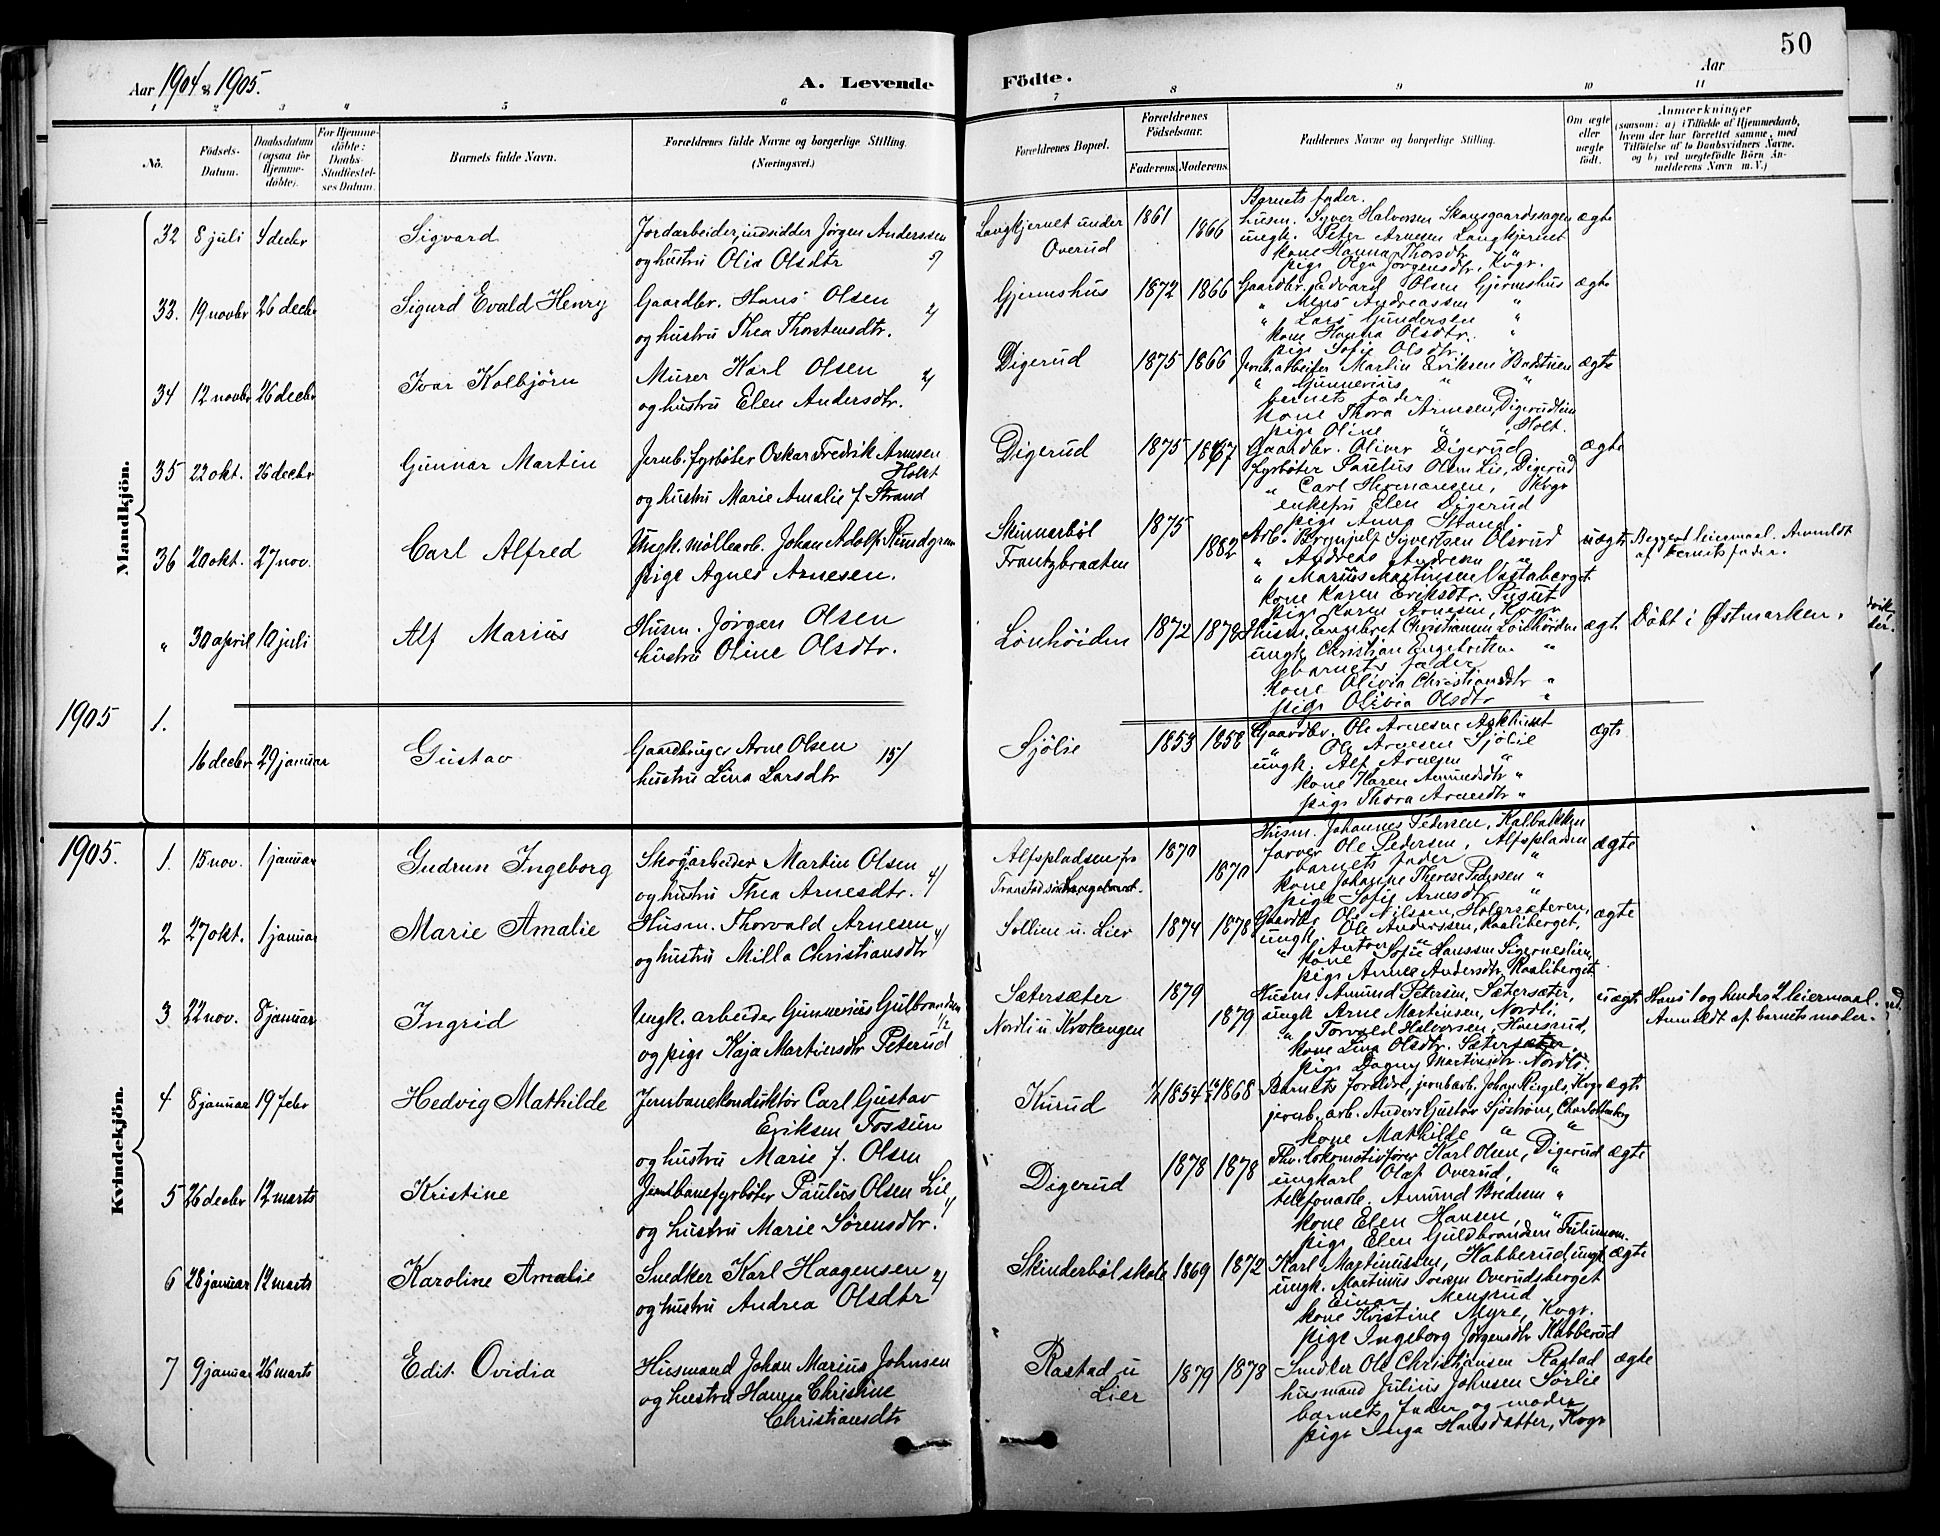 50
Aar 1904 & 1905.
A. Levende Födte.
Aar
1 2 3 4 5 6 7 8 9 10 11
No.
Födsels-Datum.
Daabsdatum (ogsaa för Hjemme-döbte).
For Hjemme-döbte: Daabs-Stadfæstel-ses Datum.
Barnets fulde Navn.
Forældrenes fulde Navne og borgerlige Stilling. (Næringsvei.)
Forældrenes Bopæl.
Forældrenes Födselsaar.
Faderens Moderens
Faddernes Navne og borgerlige Stilling.
Om ægte eller uægte födt.
Anmærkninger
(saasom: a) i Tilfælde af Hjemmedaab, hvem der har forrettet samme, med Tilföielse af to Daabsvidners Navne, og b) ved uægtefödte Börn An-melderens Navn m. V.)
Mandkjön.
32 8 juli 4 decbr Sigvard
Jordarbeider, indsidder Jörgen Anderssen
og hustru Olia Olsdtr
Langkjernet under
Overud
1861 1866
Barnets fader.
husm. Syver Halvorsen Skansgaardssagen
ungk. Peter Arnesen Langkjernet
kone Hanna Thorsdtr "
pige Olga Jörgensdtr, Kvgr.
ægte
33. 19 novbr 26 decbr Sigurd Evald Henry
Gaardbr. Hans Olsen
og hustru Thea Thorstensdtr.
Gjermshus 1872 1866
Gaardbr. Edvard Olsen Gjermshus
" Mens Andreassen "
" Lars Gundersen "
kone Hanna Olsdtr. "
pige Sofie Olsdtr.
ægte
34 12 novbr 26 decbr Ivar Kolbjörn
Murer Karl Olsen
og hustru Elen Andersdtr.
Digerud 1875 1866
Jernb. arbeider Martin Eriksen
" Gunnerius " "
barnets fader
kone Thora Arnesen, Digerudlien
pige Oline " , Holt.
ægte
35 22 okt. 26 decbr Gunnar Martin
Jernb. fyrböter Oskar Fredrik Arnesen
Holt
og hustru Marie Amalie f. Strand
Digerud 1875 1867
Gaardbr. Oliver Digerud
fyrböter Paulus Olsen Lie, Digerud
" Carl Hermansen, Kvgr
enkefru Elen Digerud
pige Anna Strand
ægte
36 20 okt. 27 nov. Carl Alfred
Ungk. möllearb. Johan Adolf Rundgren
pige Agnes Arnesen.
Skinnarböl
Frantzbraaten
1875 1882
Arb. Brynjulf Syvertsen Olsrud
" Andreas Andresen "
" Marius Martinsen Vastaberget
kone Karen Eriksdtr.
pige Karen Arnesen, Kvgr
uægte
Begges 1 leiermaal. Anmeldt
af barnets fader.
" 30 april 10 juli Alf Marius
Husm. Jörgen Olsen
hustru Oline Olsdtr.
Lönhöiden 1872 1878
Husm. Engebret Christiansen Lönhöiden
ungk. Christian Engebretsen "
barnets fader
kone Olivia Christiansdtr "
pige Olivia Olsdtr "
ægte
Döbt i Østmarken.
1905 1.
16 decbr 29 januar Gustav
Gaardbruger Arne Olsen
hustru Lina Larsdtr
15/
Sjölie 1853 1858
Gaardbr. Ole Arnesen
" Ole Arnesen Sjölie
ungk. Alf Arnesen "
kone Karen Amundsdtr "
pige Thora Arnesdtr "
ægte
Kvindekjön.
1905.
1. 15 nov. 1 januar Gudrun Ingeborg
Skogsarbeider Martin Olsen
og hustru Thea Arnesdtr. 4/
Alfspladsen fra
1870 1870
Husm. Johannes Pedersen, Kalbakken
farver Ole Pedersen, Alfspladsen
barnets fader "
kone Johanne Therese Pedersen "
pige Sofie Arnesdtr "
ægte
2 27 okt. 1 januar Marie Amalie
Husm. Thorvald Arnesen
og hustru Milla Christiansdtr
Sollien u. Lier 1874 1878
Gaardbr Ole Nilssen, Holgersæteren,
ungk. Ole Anderssen, Kaaliberget,
" Anton "
kone Sofie Hanssen Sigerneslien
pige Annes Andersdtr Kaaliberget
ægte
3 22 nov. 8 januar Ingrid
Ungk. arbeider Gunnerius Gulbrandsen
1/2
og pige Kaja Martinsdtr Peterud
Sætersæter
Nordli u Krokengen
1879 1879
Husm. Amund Petersen, Sætersæter,
ungk Arne Martinsen, Nordli,
" Torvald Halvorsen, Hansrud,
kone Lina Olsdtr. Sætersæter.
pige Dagny Martinsdtr. Nordli.
uægte
Hans 1 og hendes 2 leiermaal.
Anmeldt af barnets moder.
4 8 januar 19 febr Hedvig Mathilde
Jernbanekonduktör Carl Gustav
Eriksen Fossum
og hustru Marie f. Olsen
Kurud 1854 1868
Barnets forældre, jernbarb. Johan Riegels, Kvgr
jernb. arb. Anders Gustav Sjöström, Charlottenberg
kone Mathilde " "
ægte
5 26 decbr 12 marts Kristine
Jernbanefyrböter Paulus Olsen Lie
og hustru Marie Sörensdtr.
Digerud 1878 1878
Thv. lokomotivförer Karl Olsen, Digerud
ungkarl Olaf Overud, "
telefonarb. Amund Bredesen "
kone Elen Hansen, "
pige Elen Guldbrandsen
ægte
6 28 januar 12 marts Karoline Amalie
Snedker Karl Haagensen 2/
og hustru Andrea Olsdtr
Skinderböl skole 1869 1872
Karl Martinussen, Kabberud ungk.
ungk. Martinus Iversen Overudsberget
" Einar Mensrud
kone Kristine Myre, Kvgr.
pige Ingeborg Jörgensdtr Kabberud
ægte
7 9 januar 26 marts Edit. Ovidia
Husmand Johan Marius Johnsen
og hustru Hanna Christine
Christiansdtr
Rastad u
Lier
1879 1878
Snedker Ole Christiansen Rastad
husmand Julius Johnsen Sörlie
barnets fader og moder
pige Inga Hansdatter, Kvgr
ægte